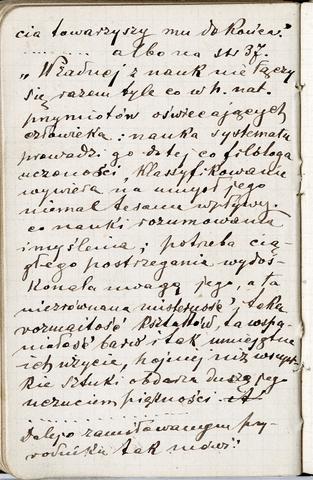 cia towarzyszy mu do końca."
. . . . . . . . albo na str 37.
"W żadnej z nauk nie łączy
się razem tyle co w h. nat.
przymiotów oświecających
człowieka: nauka systematu
prowadzi go do tej co filologa
uczoności, klasyfikowanie
wywiera na umysł jego
niemal te same wpływy.
co nauki rozumowania
i myślenia; potrzeba cią-
głego postrzegania wydos-
konala uwagę jego, a ta
niezrównana misterność, taka
rozmaitość kształtów, ta wspa-
niałość barw i tak umiejętne
ich użycie, hojniej niż wszyst-
kie sztuki obdarza duszę jego
uczuciem piękności.
. . . . . . . . . . . . . . . .
Dalej o zamiłowanym przy-
rodniku tak mówi: